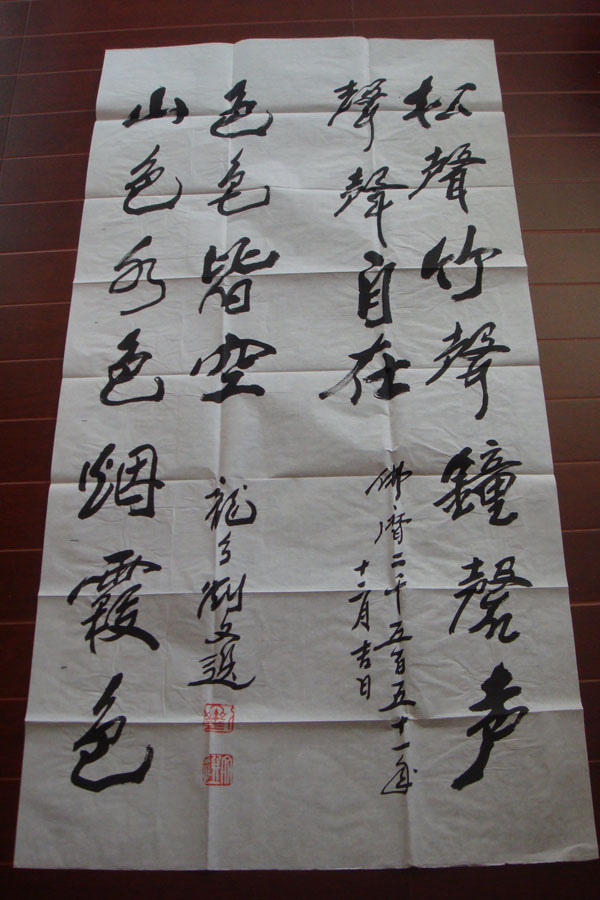 松聲竹聲鐘磬声
聲聲自在
佛曆二千五百五十一年
十二月吉日
山色水色烟霞色
色色皆空
劉文選